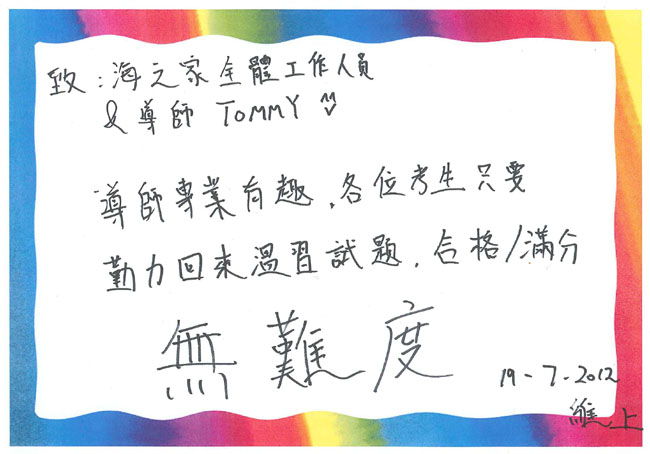 致：海之家全體工作人員
& 導師 TOMMY
導師專業有趣，各位考生只要
勤力回來溫習試題，合格/滿分
無難度
19-7-2012
上